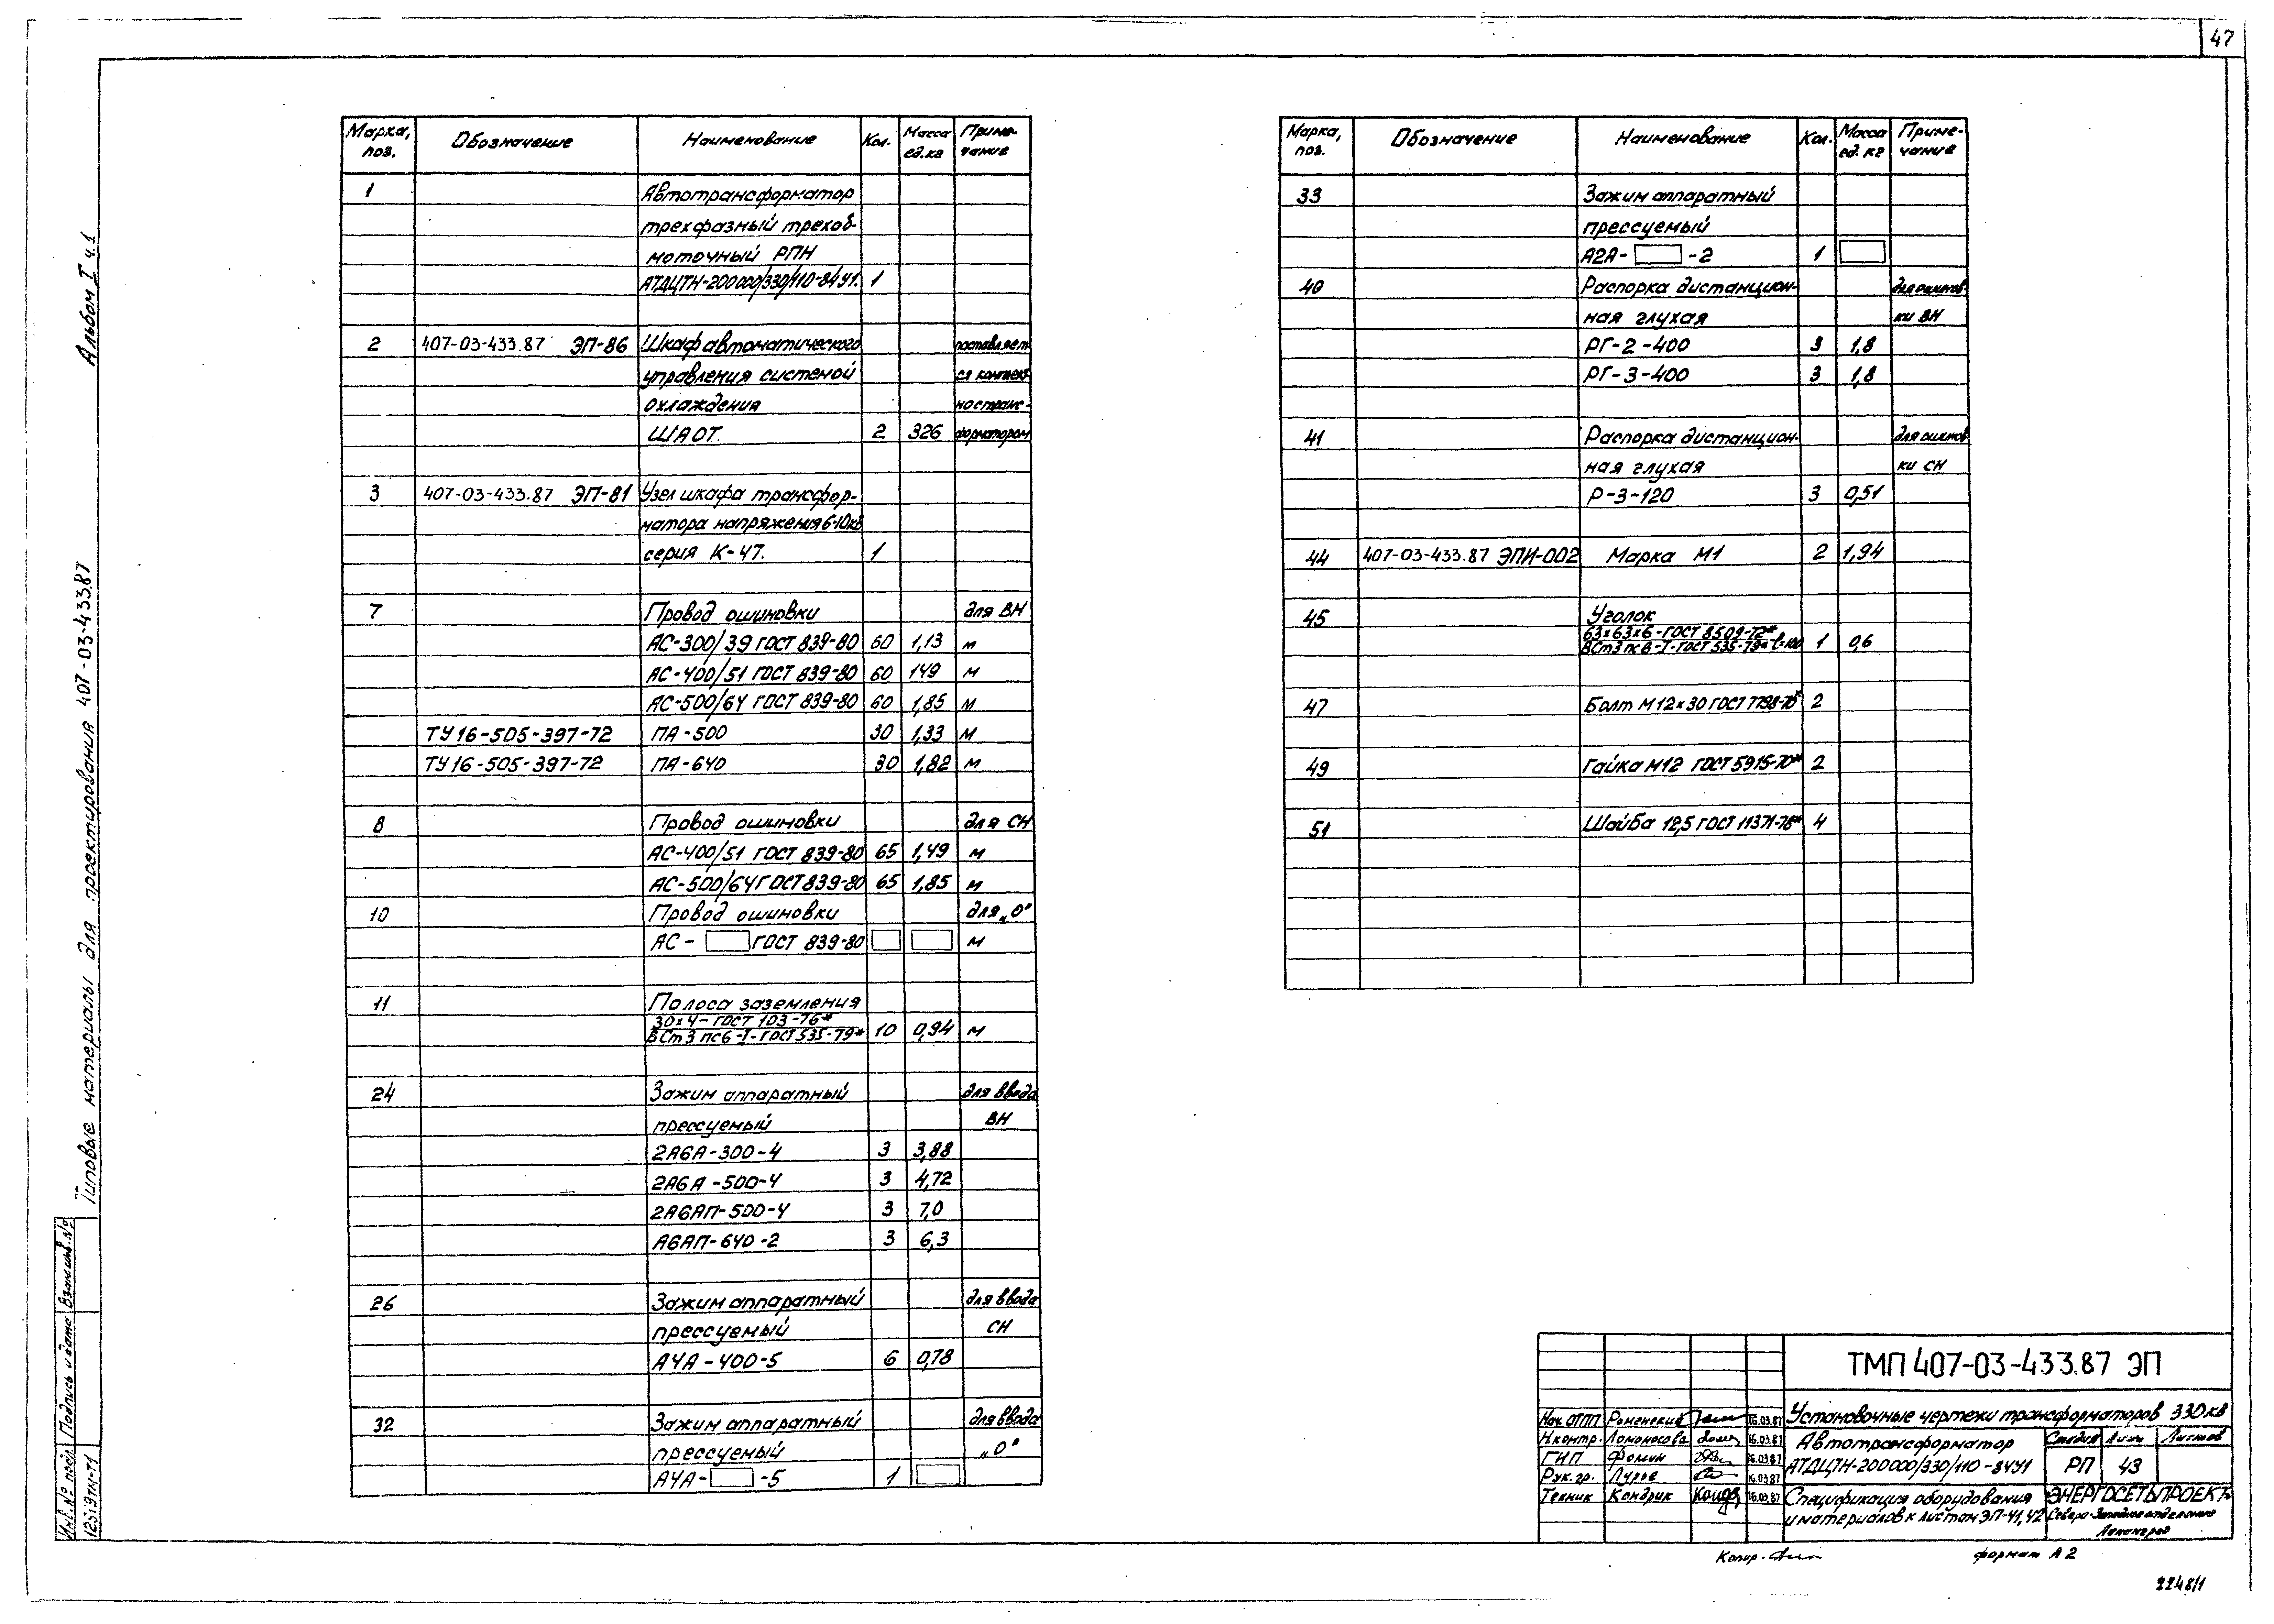 47
Альбом I ч.1
Типовые материалы для проектирования 407-03-433.87
Инв.№ подл. Подпись и дата Взам.инв.№
Марка, поз. Обозначение Наименование Кол. Масса ед.кг Примечание
1 Автотрансформатор
трехфазный трехоб-
моточный РПН
АТДЦТН-200000/330/110-84У1. 1
2 407-03-433.87 ЭП-86 Шкаф автоматического поставляет-
управления системой ся комплект-
охлаждения но транс-
ШАОТ. 2 326 форматором
3 407-03-433.87 ЭП-81 Узел шкафа трансфор-
матора напряжения 6-10кВ
серия К-47. 1
7 Провод ошиновки для ВН
АС-300/39 ГОСТ 839-80 60 1,13 м
АС-400/51 ГОСТ 839-80 60 149 м
АС-500/64 ГОСТ 839-80 60 1,85 м
ТУ16-505-397-72 ПА-500 30 1,33 м
ТУ16-505-397-72 ПА-640 30 1,82 м
8 Провод ошиновки для СН
АС-400/51 ГОСТ 839-80 65 1,49 м
АС-500/64 ГОСТ 839-80 65 1,85 м
10 Провод ошиновки для „0"
АС- ГОСТ 839-80 м
11 Полоса заземления
30х4-ГОСТ 103-76*
ВСт3 пс6-I-ГОСТ 535-79* 10 0,94 м
24 Зажим аппаратный для ввода
прессуемый ВН
2А6А-300-4 3 3,88
2А6А-500-4 3 4,72
2А6АП-500-4 3 7,0
А6АП-640-2 3 6,3
26 Зажим аппаратный для ввода
прессуемый СН
А4А-400-5 6 0,78
32 Зажим аппаратный для ввода
прессуемый „0"
А4А- -5 1
Марка, поз. Обозначение Наименование Кол. Масса ед. кг Примечание
33 Зажим аппаратный
прессуемый
А2А- -2 1
40 Распорка дистанцион- для ошинов-
ная глухая ки ВН
РГ-2-400 3 1,8
РГ-3-400 3 1,8
41 Распорка дистанцион- для ошинов-
ная глухая ки СН
Р-3-120 3 0,51
44 407-03-433.87 ЭПИ-002 Марка М1 2 1,94
45 Уголок
63х63х6-ГОСТ 8509-72*
ВСт3 пс6-I-ГОСТ 535-79* ℓ=100 1 0,6
47 Болт М12х30 ГОСТ 7798-70* 2
49 Гайка М12 ГОСТ 5915-70* 2
51 Шайба 12,5 ГОСТ 11371-78* 4
ТМП 407-03-433.87 ЭП
Нач.ОТПП Роменский 16.03.87 Установочные чертежи трансформаторов 330кВ
Н.контр. Ломоносова 16.03.87
ГИП Фомин 16.03.87
Рук.гр. Лурье 16.03.87
Техник Кондрик 16.03.87
Автотрансформатор
АТДЦТН-200000/330/110-84У1
Стадия Лист Листов
РП 43
Спецификация оборудования
и материалов к листам ЭП-41,42
ЭНЕРГОСЕТЬПРОЕКТ
Северо-Западное отделение
Ленинград
Копир.
формат А2
2248/1